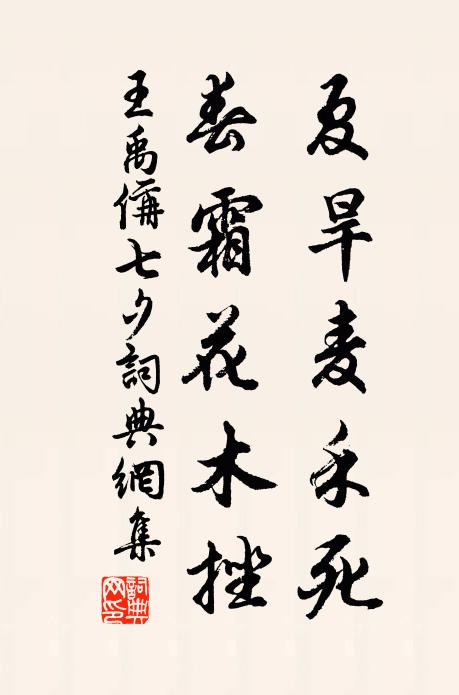 夏旱麦禾死
春霜花木挫
王禹偁七夕詞典網集
詞典网印